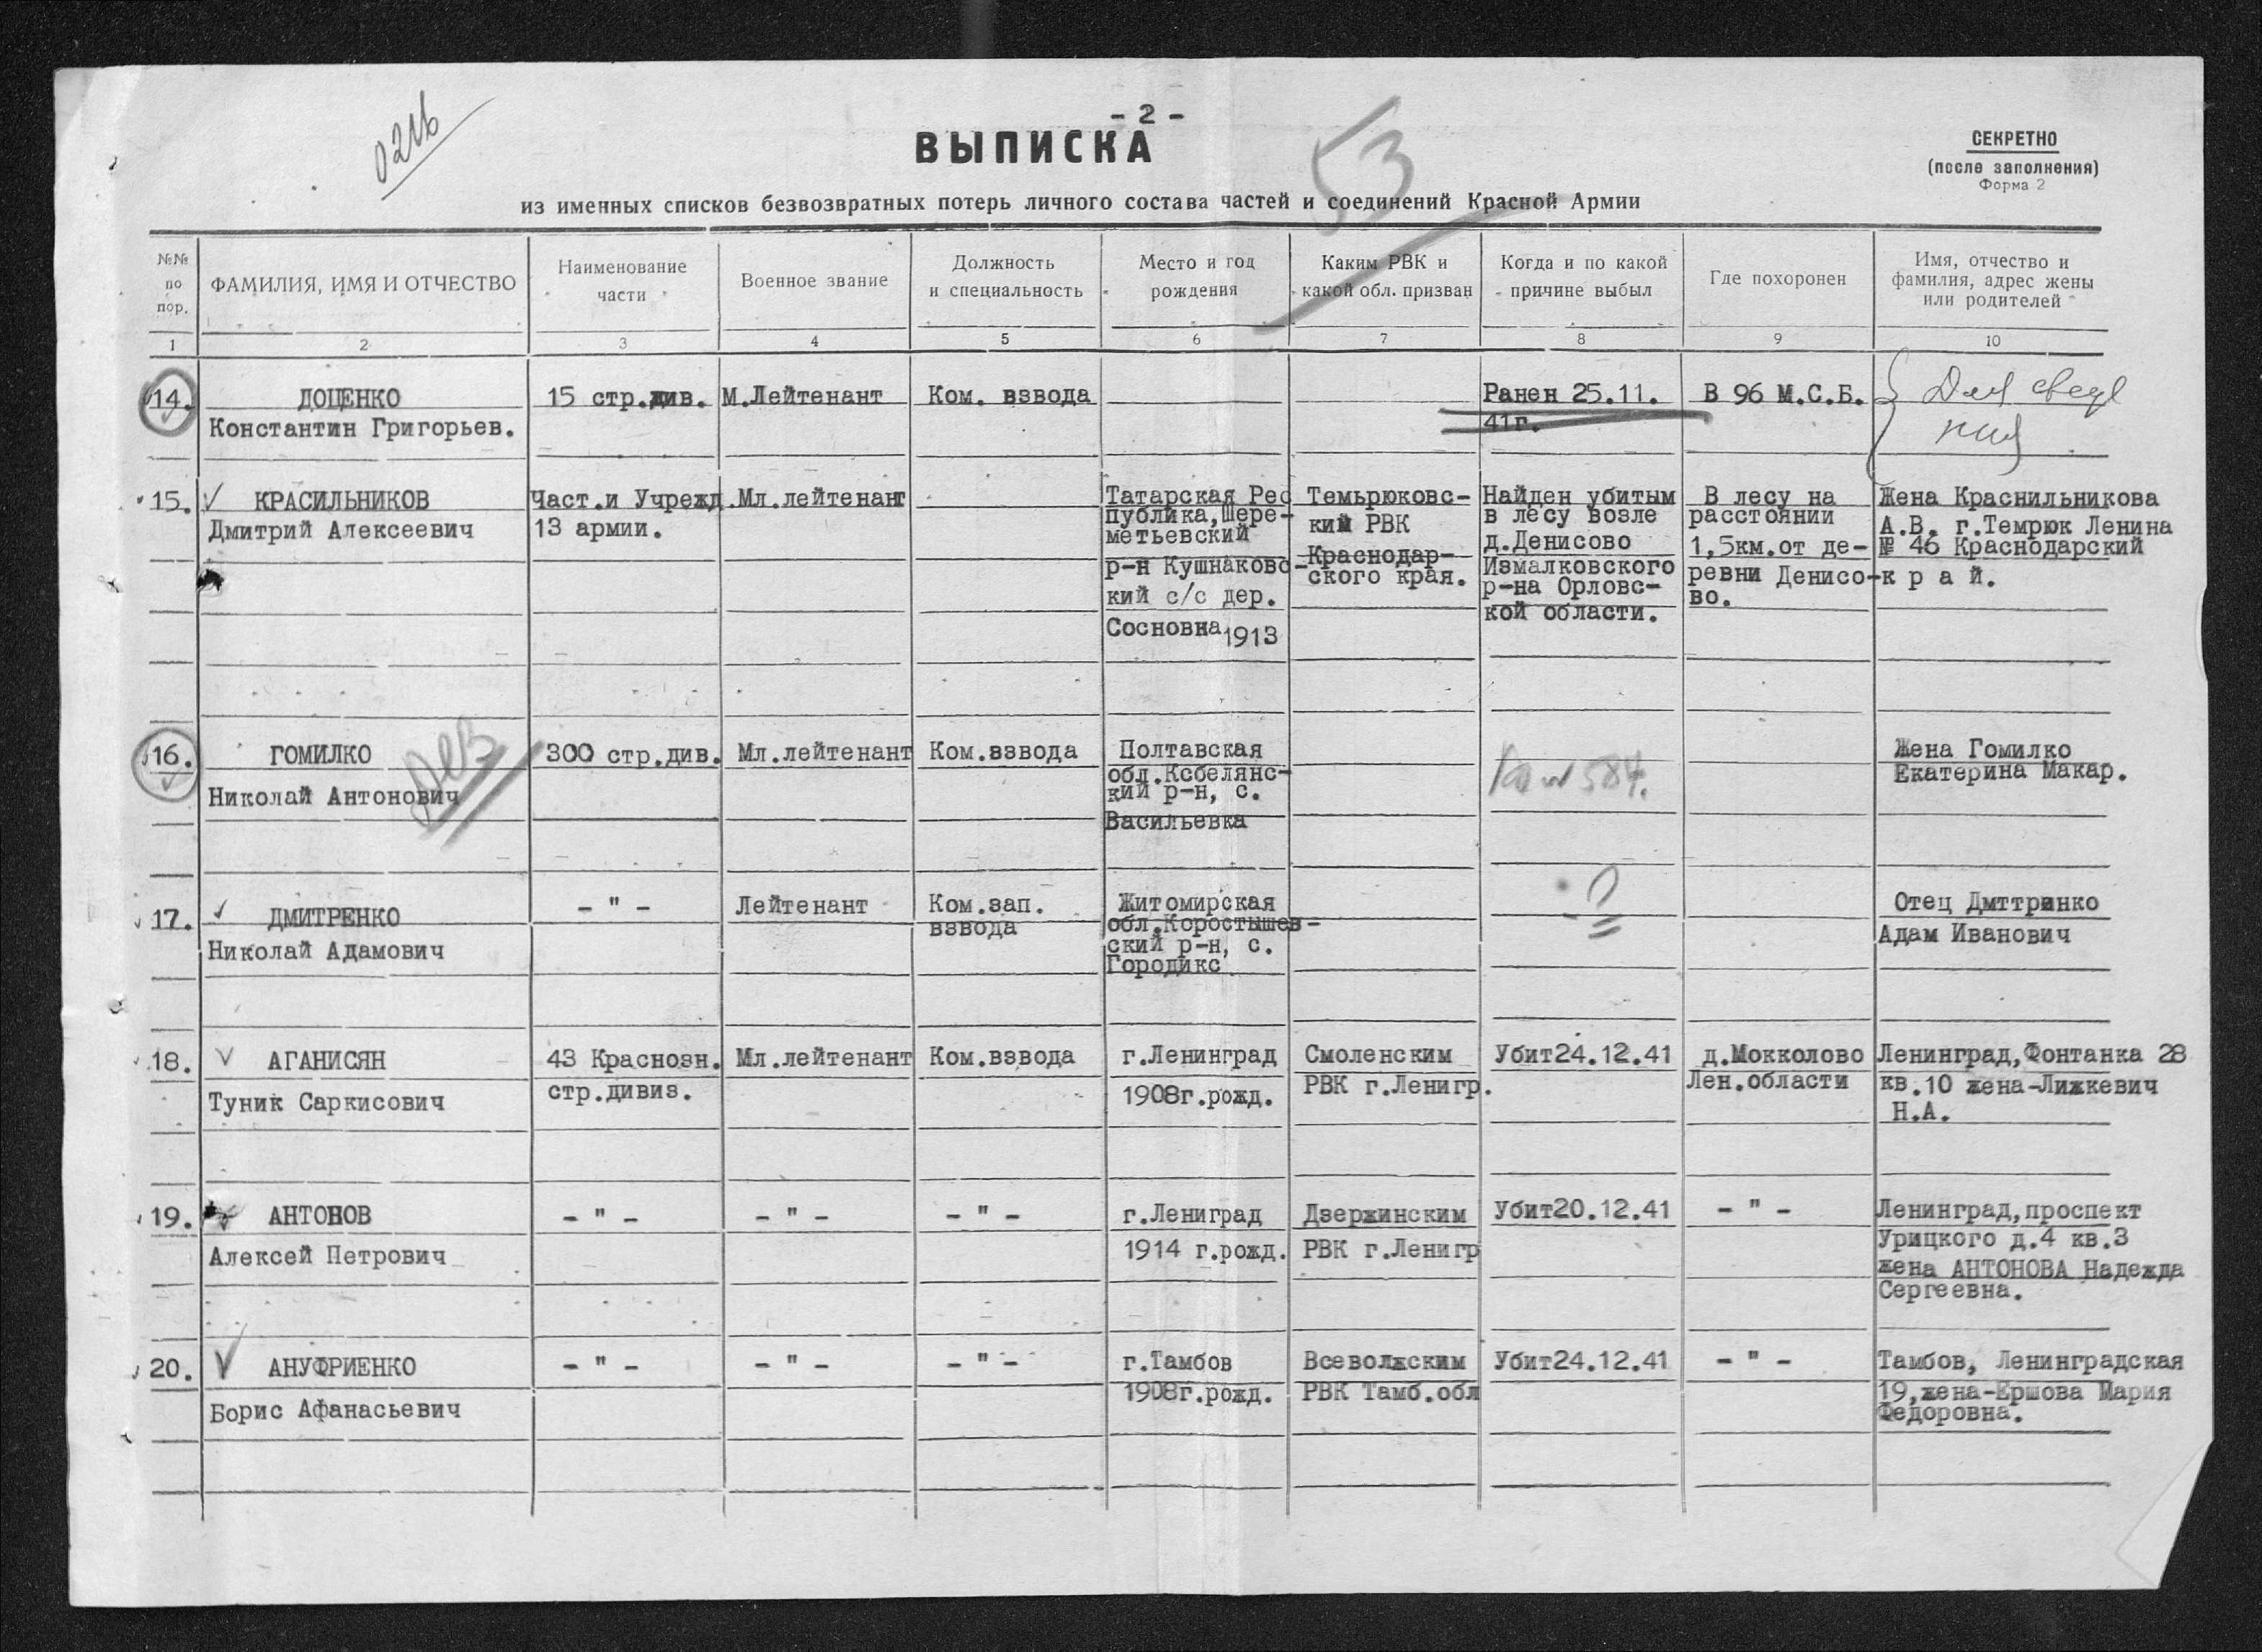 - 2 -
ВЫПИСКА
СЕКРЕТНО
(после заполнения)
Форма 2
53
из именных списков безвозвратных потерь личного состава частей и соединений Красной Армии
№№ по пор.
ФАМИЛИЯ, ИМЯ И ОТЧЕСТВО
Наименование части
Военное звание
Должность и специальность
Место и год рождения
Каким РВК и какой обл. призван
Когда и по какой причине выбыл
Где похоронен
Имя, отчество и фамилия, адрес жены или родителей
1 2 3 4 5 6 7 8 9 10
14.
ДОЦЕНКО
Константин Григорьев.
15 стр.див.
М.Лейтенант
Ком. взвода
Ранен 25.11.
41г.
В 96 М.С.Б.
Для сведе
ния
15.
КРАСИЛЬНИКОВ
Дмитрий Алексеевич
Част.и Учрежд.
13 армии.
Мл.лейтенант
Татарская Рес
публика,Шере-
метьевский
р-н Кушнаковс-
кий с/с дер.
Сосновка 1913
Темьрюковс-
кий РВК
Краснодар-
ского края.
Найден убитым
в лесу возле
д.Денисово
Измалковского
р-на Орловс-
кой области.
В лесу на
расстоянии
1,5км.от де-
ревни Денисо-
во.
Жена Краснильникова
А.В. г.Темрюк Ленина
№ 46 Краснодарский
к р а й.
16.
ГОМИЛКО
Николай Антонович
300 стр.див.
Мл.лейтенант
Ком.взвода
Полтавская
обл.Кобелянс-
кий р-н, с.
Васильевка
584.
Жена Гомилко
Екатерина Макар.
17.
ДМИТРЕНКО
Николай Адамович
- " -
Лейтенант
Ком.зап.
взвода
Житомирская
обл.Коростышев-
ский р-н, с.
Городикс
?
Отец Дмттринко
Адам Иванович
18.
АГАНИСЯН
Туник Саркисович
43 Краснозн.
стр.дивиз.
Мл.лейтенант
Ком.взвода
г.Ленинград
1908г.рожд.
Смоленским
РВК г.Ленигр.
Убит24.12.41
д.Мокколово
Лен.области
Ленинград,Фонтанка 28
кв.10 жена-Лижкевич
Н.А.
19.
АНТОНОВ
Алексей Петрович
- " -
- " -
- " -
г.Лениград
1914 г.рожд.
Дзержинским
РВК г.Ленигр
Убит20.12.41
- " -
Ленинград,проспект
Урицкого д.4 кв.3
жена АНТОНОВА Надежда
Сергеевна.
20.
АНУФРИЕНКО
Борис Афанасьевич
- " -
- " -
- " -
г.Тамбов
1908г.рожд.
Всеволжским
РВК Тамб.обл
Убит24.12.41
- " -
Тамбов, Ленинградская
19,жена-Ершова Мария
Федоровна.